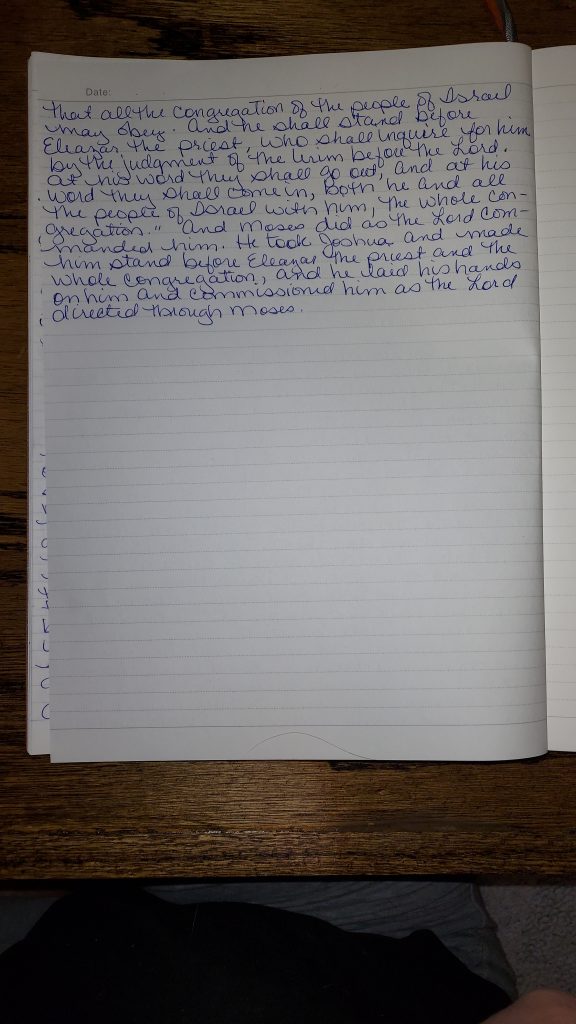 Date:
that all the congregation of the people of Israel
may obey. And he shall stand before
Eleazar the priest, who shall inquire for him
by the judgment of the Urim before the Lord.
At his word they shall go out, and at his
word they shall come in, both he and all
the people of Israel with him, the whole con-
gregation." And Moses did as the Lord com-
manded him. He took Joshua and made
him stand before Eleazar the priest and the
whole congregation, and he laid his hands
on him and commissioned him as the Lord
directed through Moses.